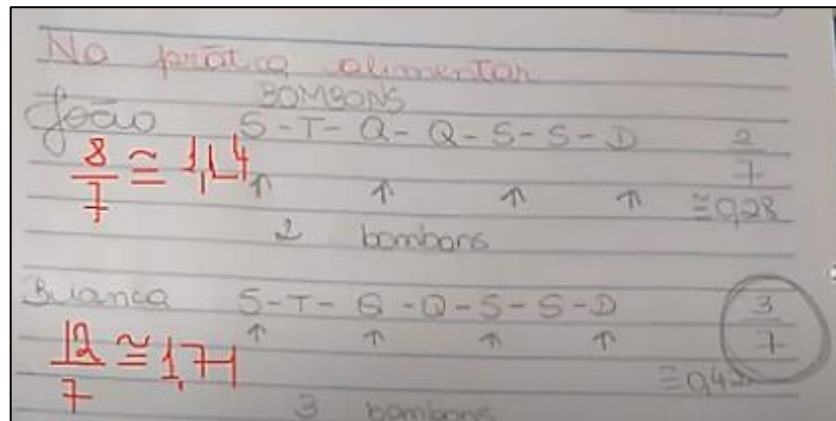 Na prática alimentar
BOMBONS
João S - T - Q - Q - S - S - D 2/7
8/7 ≅ 1,14
↑ ↑ ↑ ↑ ≅ 0,28
2 bombons
Bianca S - T - Q - Q - S - S - D 3/7
12/7 ≅ 1,71
↑ ↑ ↑ ↑
3 bombons